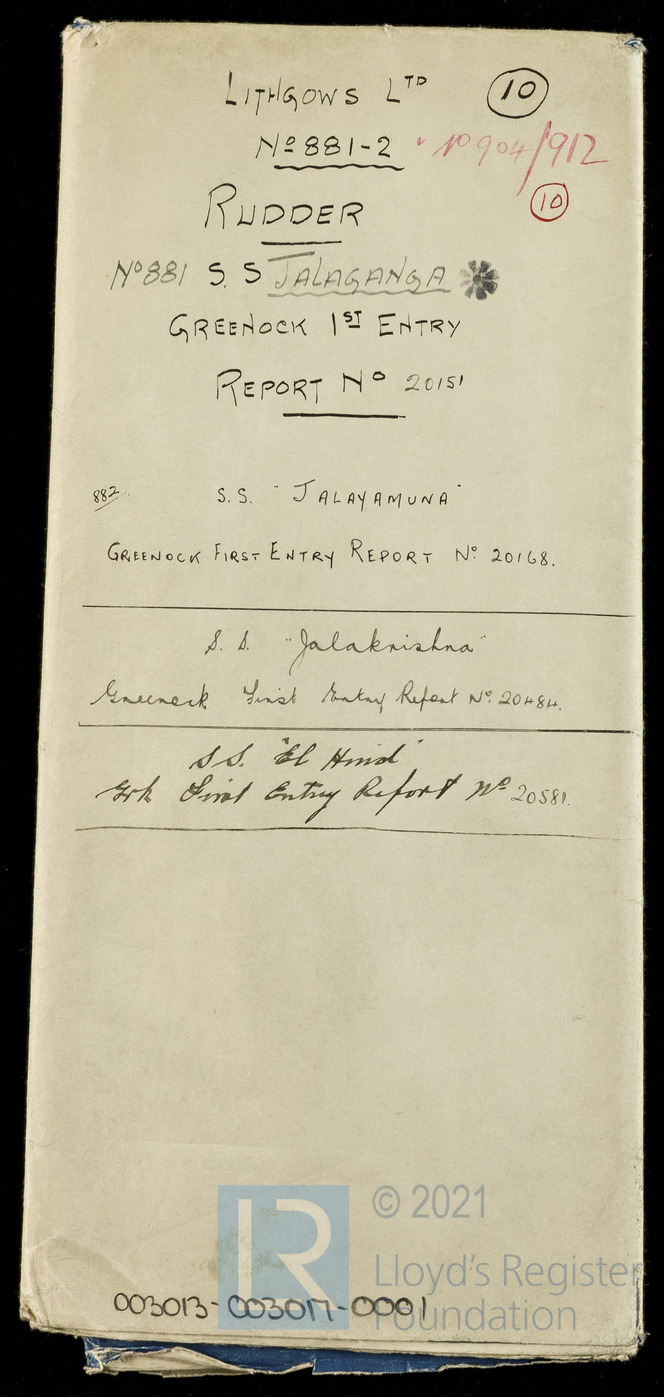 LITHGOWS LTD 10
No 881-2 No 904/912
10
RUDDER
No 881 S.S JALAGANGA
GREENOCK 1ST ENTRY
REPORT No 20151
882 S.S. "JALAYAMUNA"
GREENOCK FIRST ENTRY REPORT No. 20168.
S.S. "Jalakrishna"
Greenock First Entry Report No. 20484.
S.S. "El Hind"
Grk First Entry Report No 20581.
© 2021
LR
Lloyd's Register
Foundation
003013-003017-0001